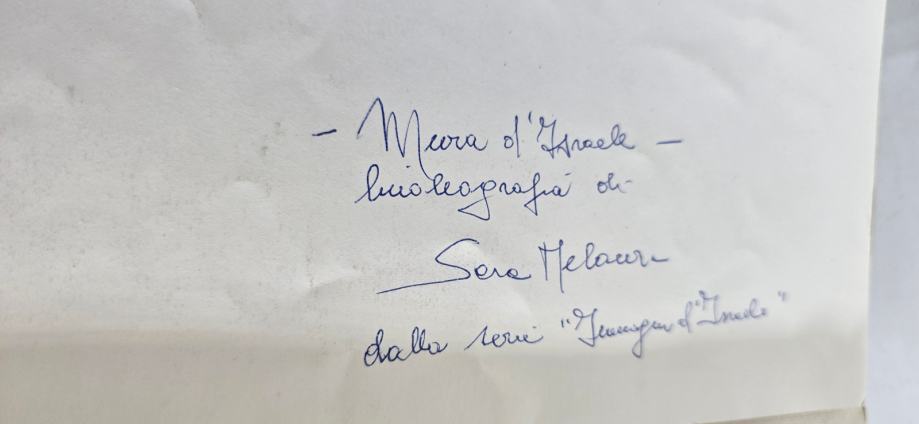 - Mura d'Israele -
linoleografia di
Sara Melauri
dalla serie "Immagini d'Israele"